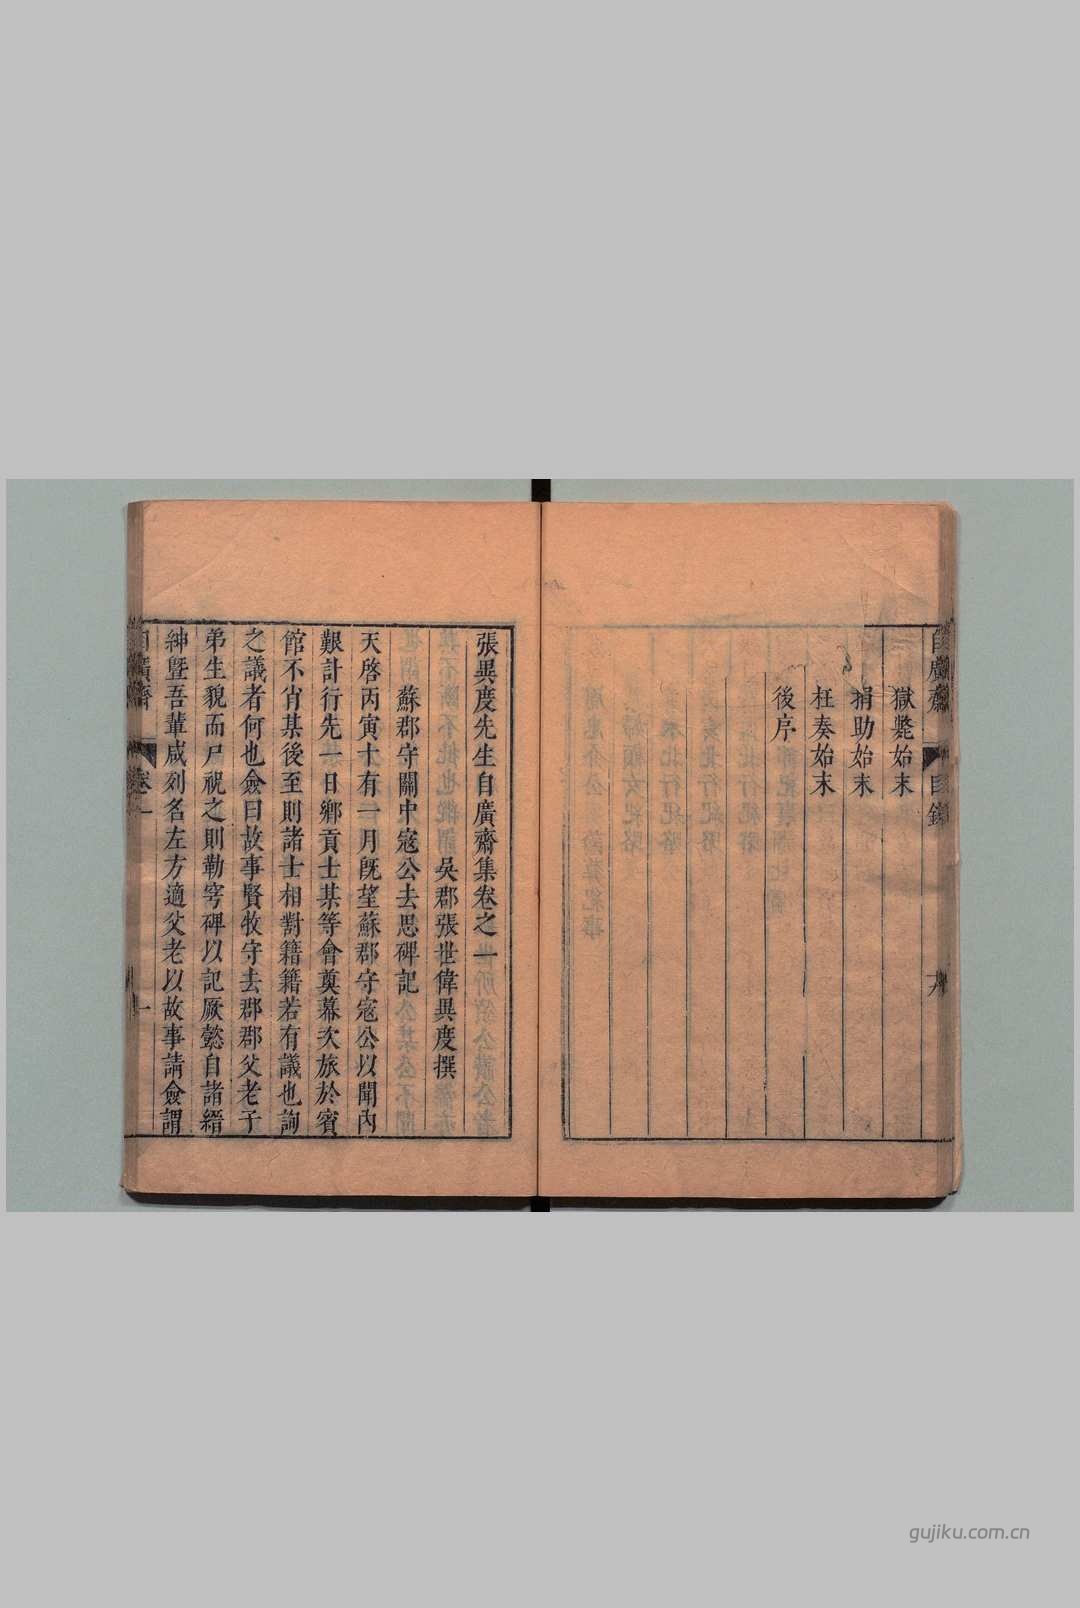 自廣齋 目錄
獄斃始末
捐助始末
枉奏始末
後序
張異度先生自廣齋集卷之一
吳郡張世偉異度撰
蘇郡守關中寇公去思碑記
天啓丙寅十有一月既望蘇郡守寇公以聞內
艱計行先一日鄉貢士某等會奠幕次旅於賓
館不肖某後至則諸士相對籍籍若有議也詢
之議者何也僉曰故事賢牧守去郡郡父老子
弟生貌而尸祝之則勒穹碑以記厥懿自諸縉
紳暨吾輩咸列名左方適父老以故事請僉謂
自廣齋 卷一 一
gujiku.com.cn